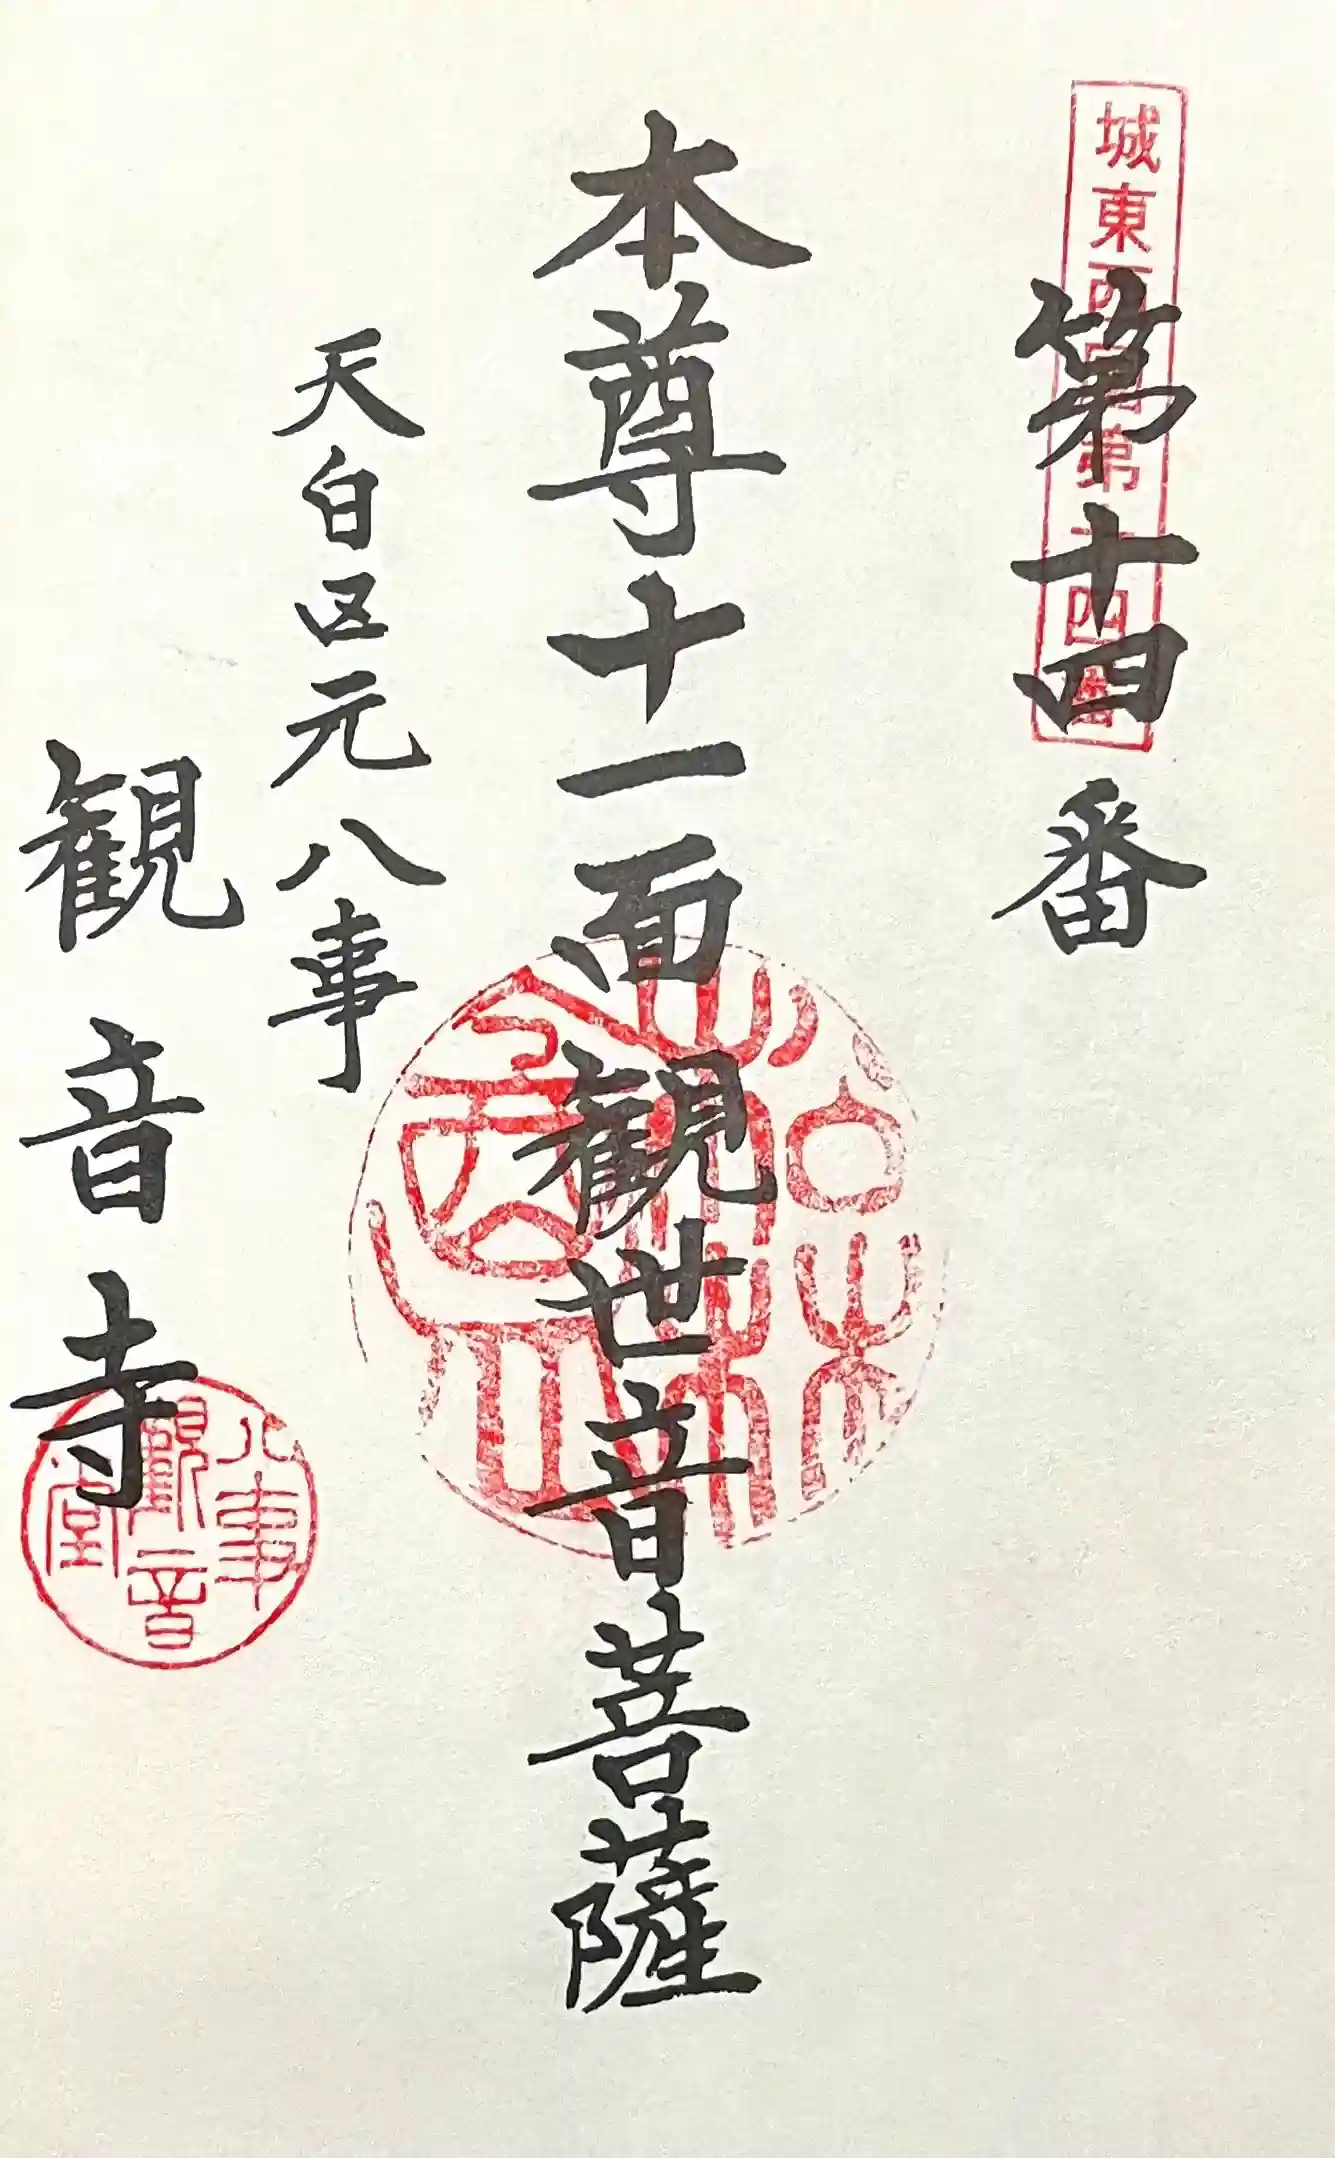 城東西国第十四番
第十四番
本尊十一面観世音菩薩
天白区元八事
観音寺
八事
観音
堂